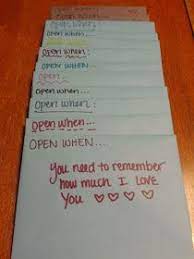 OPEN WHEN...
Open when...
Open When...
OPEN WHEN...
open...
open when...
Open when:
Open When...
OPEN WHEN...
you need to remember
how much I LOVE
you ♡ ♡ ♡ ♡